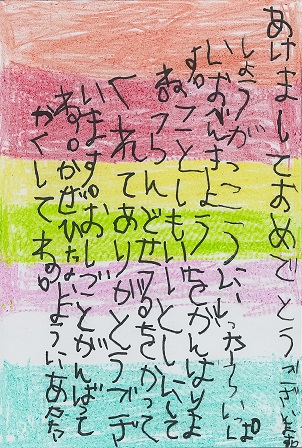 あけましておめでとうございます
しょうがっこういいったらいっぱ
いおべんきょうをがんばるよ
ことしもいいとしにして
ね。らんどせるをかって
くれてありがとうござ
います。おしごとがんばって
ね。かぜひかないよういあたた
かくしてね。